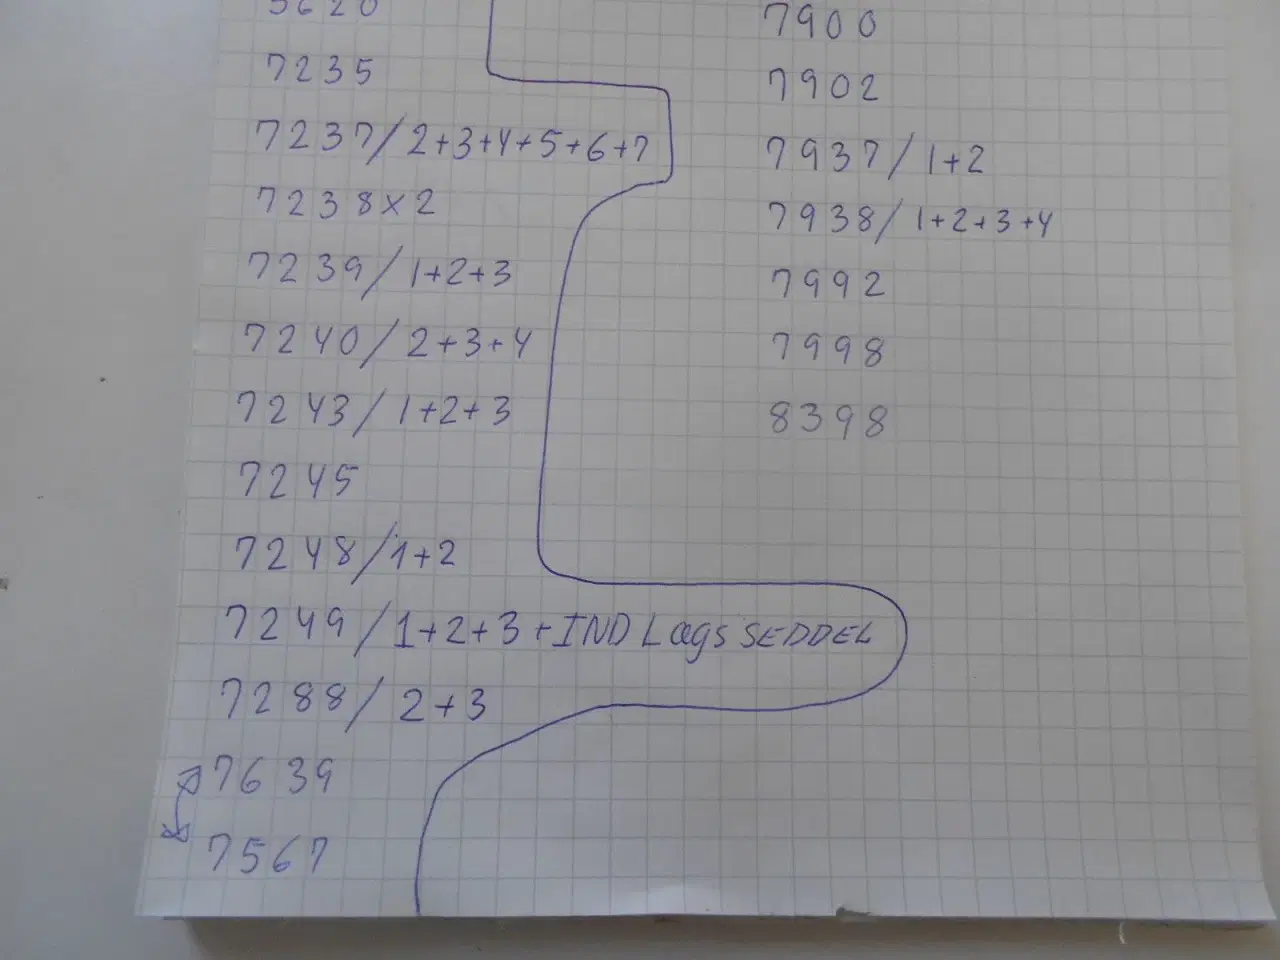 5620
7235
7237/2+3+4+5+6+7
7238x2
7239/1+2+3
7240/2+3+4
7243/1+2+3
7245
7248/1+2
7249/1+2+3+INDLagsSEDDEL
7288/2+3
7639
7567
7900
7902
7937/1+2
7938/1+2+3+4
7992
7998
8398